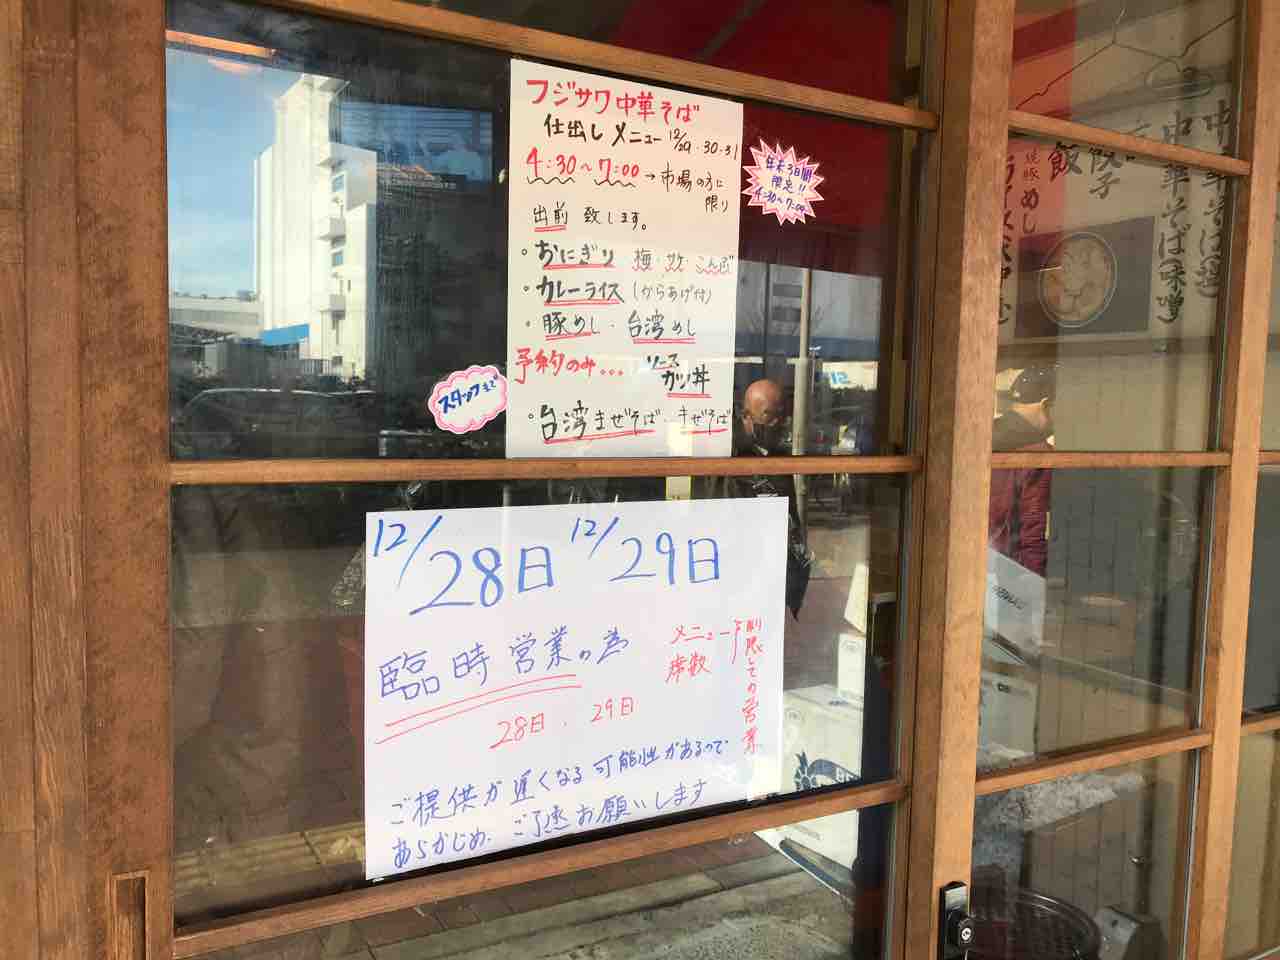 フジサワ中華そば
仕出しメニュー 12/29・30・31
4:30〜7:00→市場の方に
限り
出前致します。
・おにぎり 梅・サケ・こんぶ
・カレーライス(からあげ付)
・豚めし・台湾めし
予約のみ… ソース
カツ丼
・台湾まぜそば・まぜそば
年末3日間
限定!!
4:30〜7:00
スタッフまで
12/28日 12/29日
臨時営業の為
28日、29日
メニュー
席数
制限しての営業
ご提供が遅くなる可能性があるので
あらかじめ、ご了承お願いします
中華そば(塩)
中華そば(味噌)
餃子
焼豚めし
飯